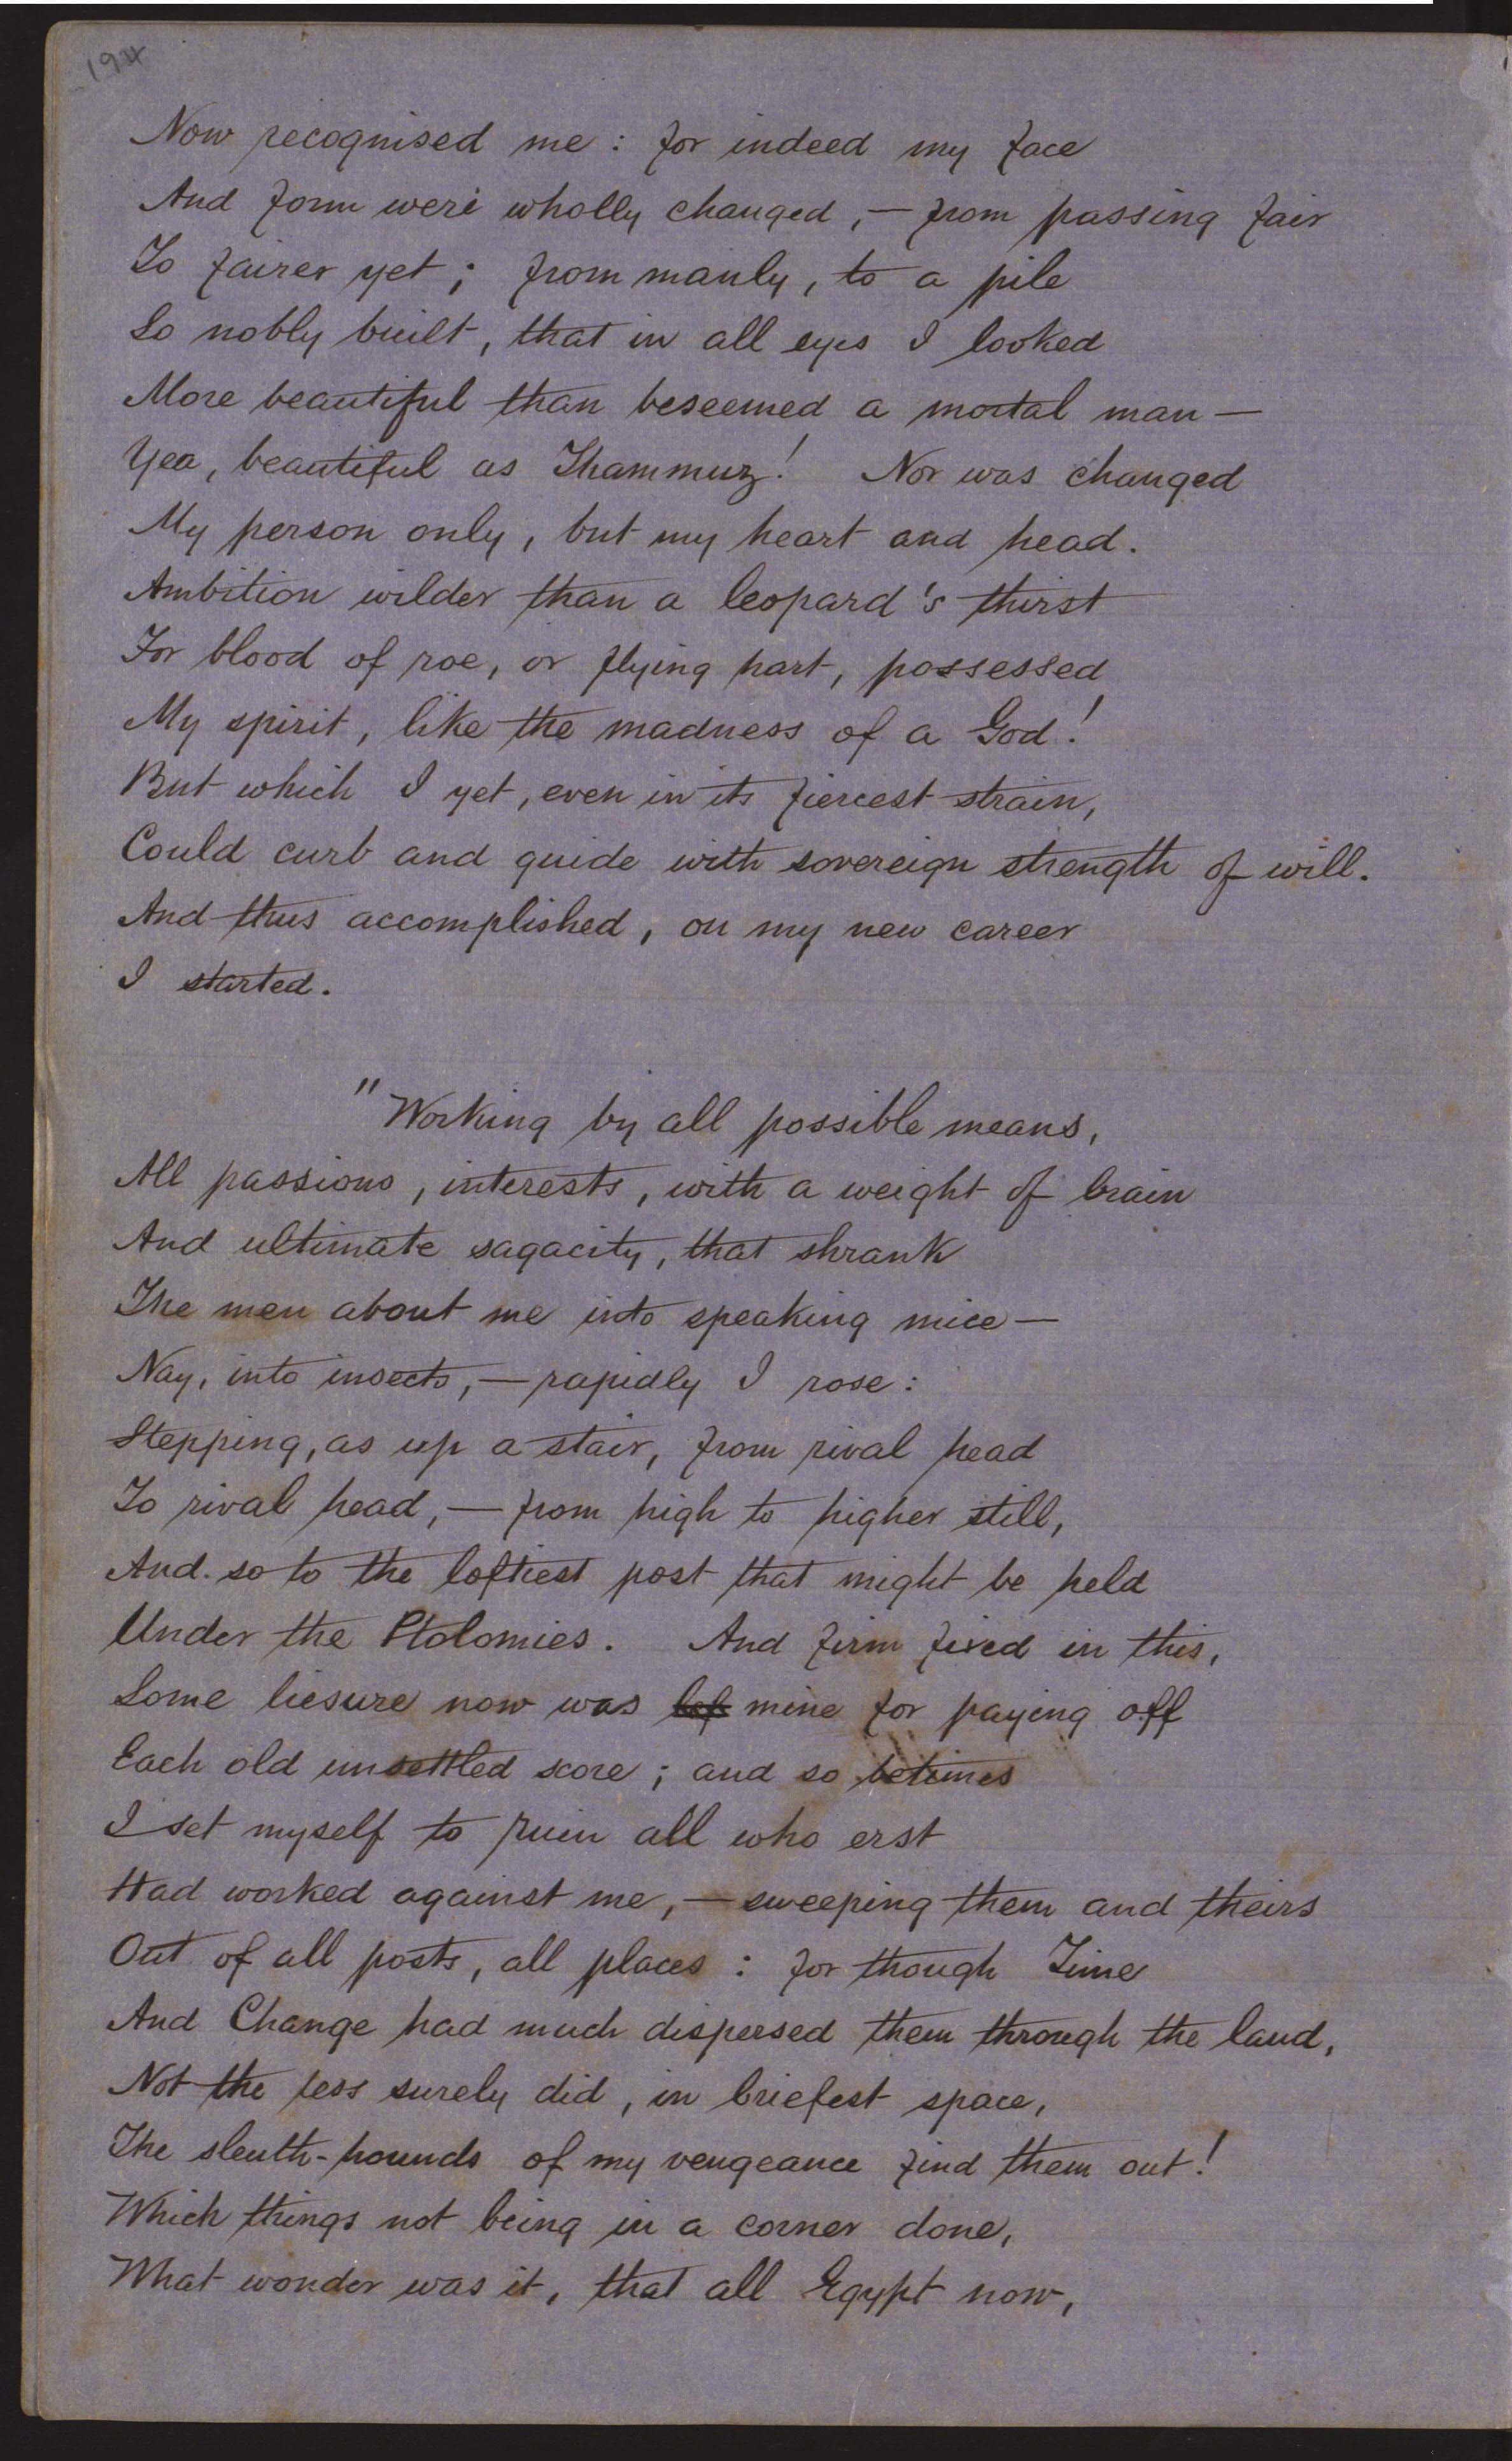 194
Now recognised me : for indeed my face
And form were wholly changed, — from passing fair
To fairer yet ; from manly, to a pile
So nobly built, that in all eyes I looked
More beautiful than beseemed a mortal man —
Yea, beautiful as Thammuz! Nor was changed
My person only, but my heart and head.
Ambition wilder than a leopard's thirst
For blood of roe, or flying hart, possessed
My spirit, like the madness of a God!
But which I yet, even in its fiercest strain,
Could curb and guide with sovereign strength of will.
And thus accomplished, on my new career
I started.
"Working by all possible means,
All passions, interests, with a weight of brain
And ultimate sagacity, that shrank
The men about me into speaking mice —
Nay, into insects, — rapidly I rose :
Stepping, as up a stair, from rival head
To rival head, — from high to higher still,
And so to the loftiest post that might be held
Under the Ptolomies. And firm fixed in this,
Some liesure now was lef mine for paying off
Each old unsettled score ; and so betimes
I set myself to ruin all who erst
Had worked against me, — sweeping them and theirs
Out of all posts, all places : for though Time
And Change had much dispersed them through the land,
Not the less surely did, in briefest space,
The sleuth-hounds of my vengeance find them out!
Which things not being in a corner done,
What wonder was it, that all Egypt now,